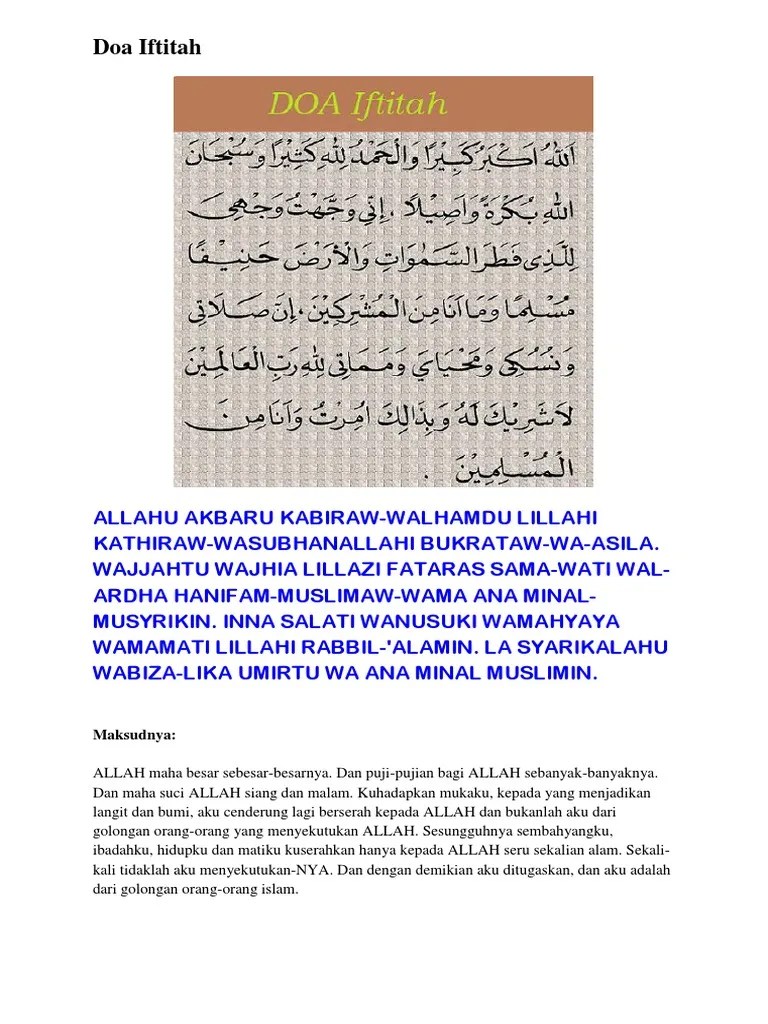 Doa Iftitah
DOA Iftitah
اَللهُ اَكْبَرُ كَبِيْرًا وَالْحَمْدُ لِلّٰهِ كَثِيْرًا وَسُبْحَانَ
اللهِ بُكْرَةً وَاَصِيْلًا ، اِنِّيْ وَجَّهْتُ وَجْهِيَ
لِلَّذِى فَطَرَ السَّمٰوَاتِ وَالْاَرْضَ حَنِيْفًا
مُسْلِمًا وَمَا اَنَا مِنَ الْمُشْرِكِيْنَ ، اِنَّ صَلَاتِى
وَنُسُكِى وَمَحْيَايَ وَمَمَاتِى لِلّٰهِ رَبِّ الْعَالَمِيْنَ
لَا شَرِيْكَ لَهُ وَبِذَالِكَ اُمِرْتُ وَاَنَا مِنَ
الْمُسْلِمِيْنَ .
ALLAHU AKBARU KABIRAW-WALHAMDU LILLAHI
KATHIRAW-WASUBHANALLAHI BUKRATAW-WA-ASILA.
WAJJAHTU WAJHIA LILLAZI FATARAS SAMA-WATI WAL-
ARDHA HANIFAM-MUSLIMAW-WAMA ANA MINAL-
MUSYRIKIN. INNA SALATI WANUSUKI WAMAHYAYA
WAMAMATI LILLAHI RABBIL-'ALAMIN. LA SYARIKALAHU
WABIZA-LIKA UMIRTU WA ANA MINAL MUSLIMIN.
Maksudnya:
ALLAH maha besar sebesar-besarnya. Dan puji-pujian bagi ALLAH sebanyak-banyaknya.
Dan maha suci ALLAH siang dan malam. Kuhadapkan mukaku, kepada yang menjadikan
langit dan bumi, aku cenderung lagi berserah kepada ALLAH dan bukanlah aku dari
golongan orang-orang yang menyekutukan ALLAH. Sesungguhnya sembahyangku,
ibadahku, hidupku dan matiku kuserahkan hanya kepada ALLAH seru sekalian alam. Sekali-
kali tidaklah aku menyekutukan-NYA. Dan dengan demikian aku ditugaskan, dan aku adalah
dari golongan orang-orang islam.